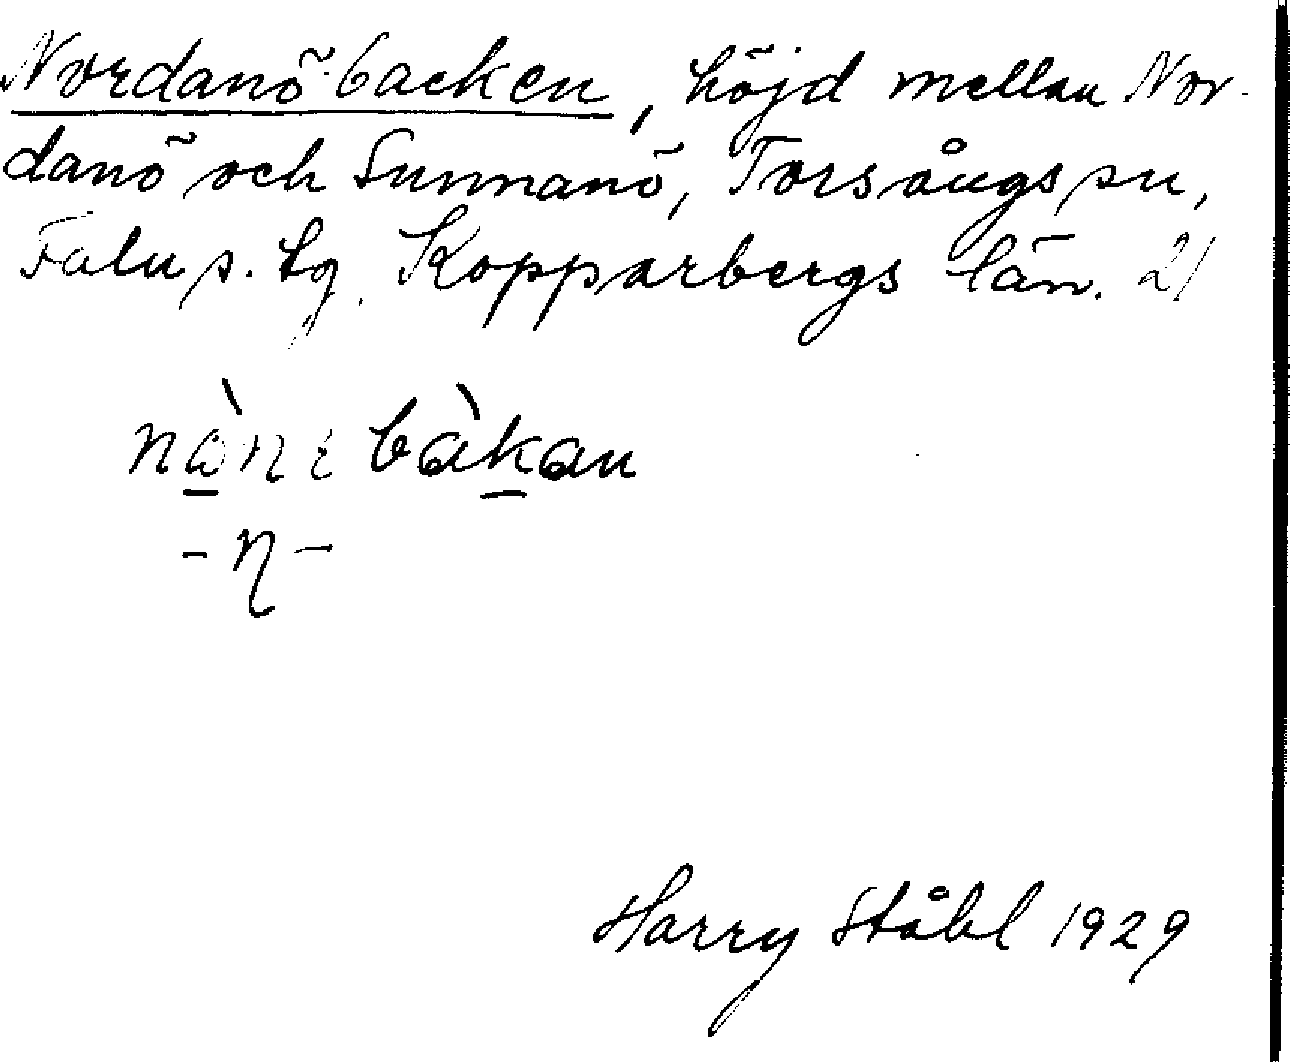 Nordanö-backen, höjd mellan Nor-
danö och Sunnanö, Torsångs sn,
Falu s. tg. Kopparbergs län. 21
bàkan
Harry Ståhl 1929